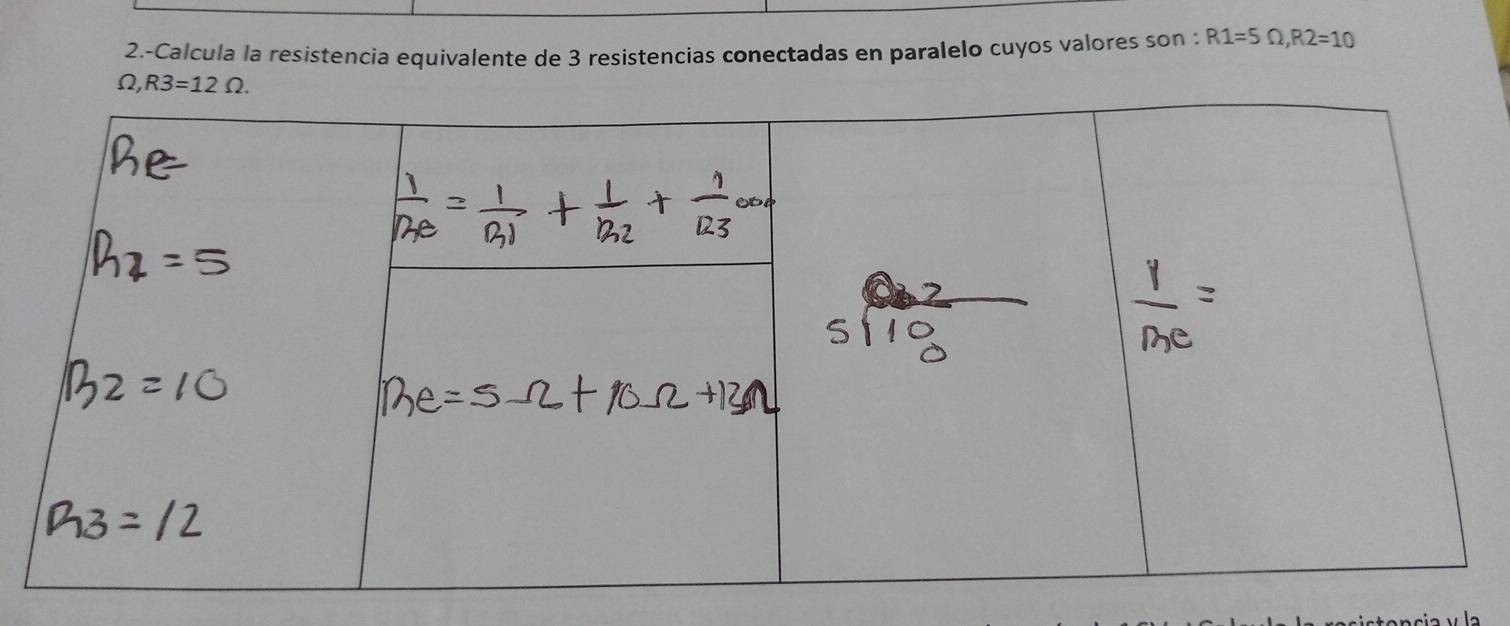 2.-Calcula la resistencia equivalente de 3 resistencias conectadas en paralelo cuyos valores son : R1=5 Ω,R2=10
Ω,R3=12 Ω.
Re=
R1=5
R2=10
R3=12
1/Re = 1/R1 + 1/R2 + 1/R3 ...
Re=5Ω+10Ω+12Ω
2
5 10
0
1/Re =
resistencia y la